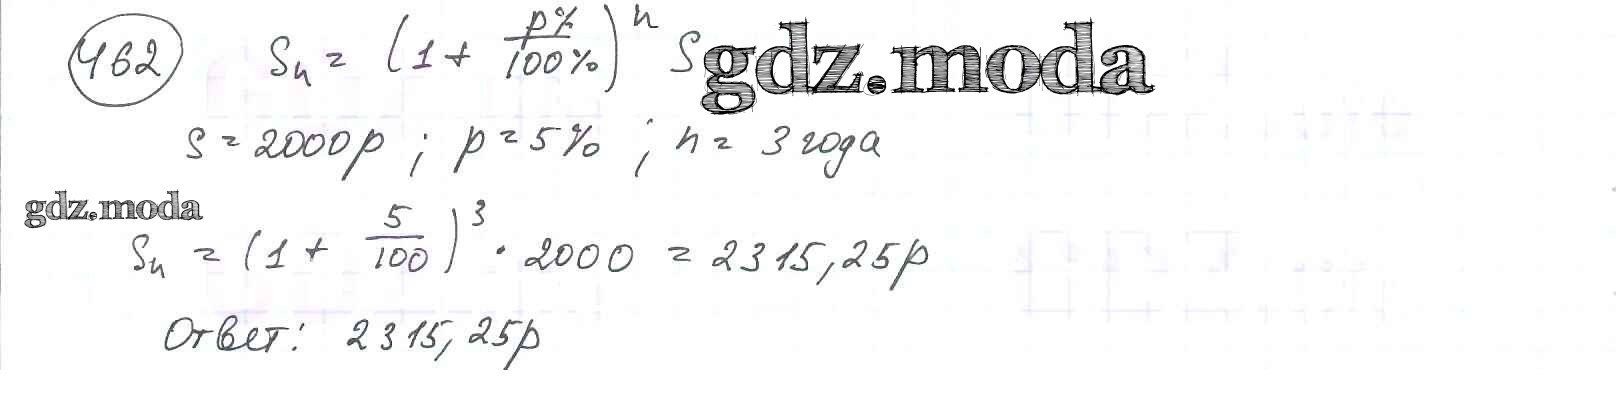 462 Sn = (1 + p%/100%)^n S gdz.moda
S = 2000р ; p = 5% ; n = 3 года
gdz.moda
Sn = (1 + 5/100)^3 · 2000 = 2315,25р
Ответ: 2315,25р